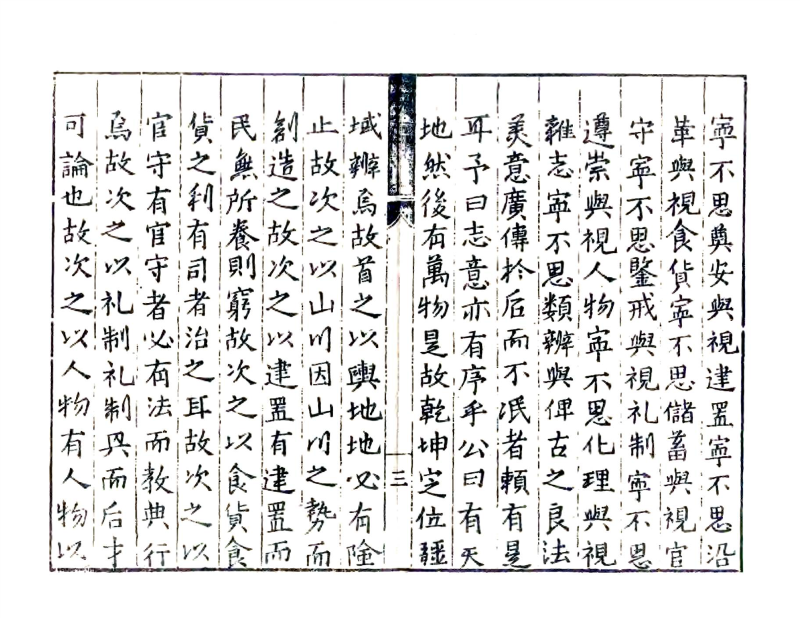 寕不思奠安與視建置寕不思沿
革與視食貨寕不思儲蓄與視官
守寕不思鑒戒與視礼制寕不思
遵崇與視人物寕不思化理與視
雜志寕不思類辨與俾古之良法
美意廣傳於后而不泯者頼有是
耳予曰志意亦有序乎公曰有天
地然後有萬物是故乾坤定位疆
三
域辨焉故首之以輿地地必有險
止故次之以山川因山川之勢而
創造之故次之以建置有建置而
民無所養則窮故次之以食貨食
貨之利有司者治之耳故次之以
官守有官守者必有法而教典行
焉故次之以礼制礼制興而后才
可論也故次之以人物有人物以